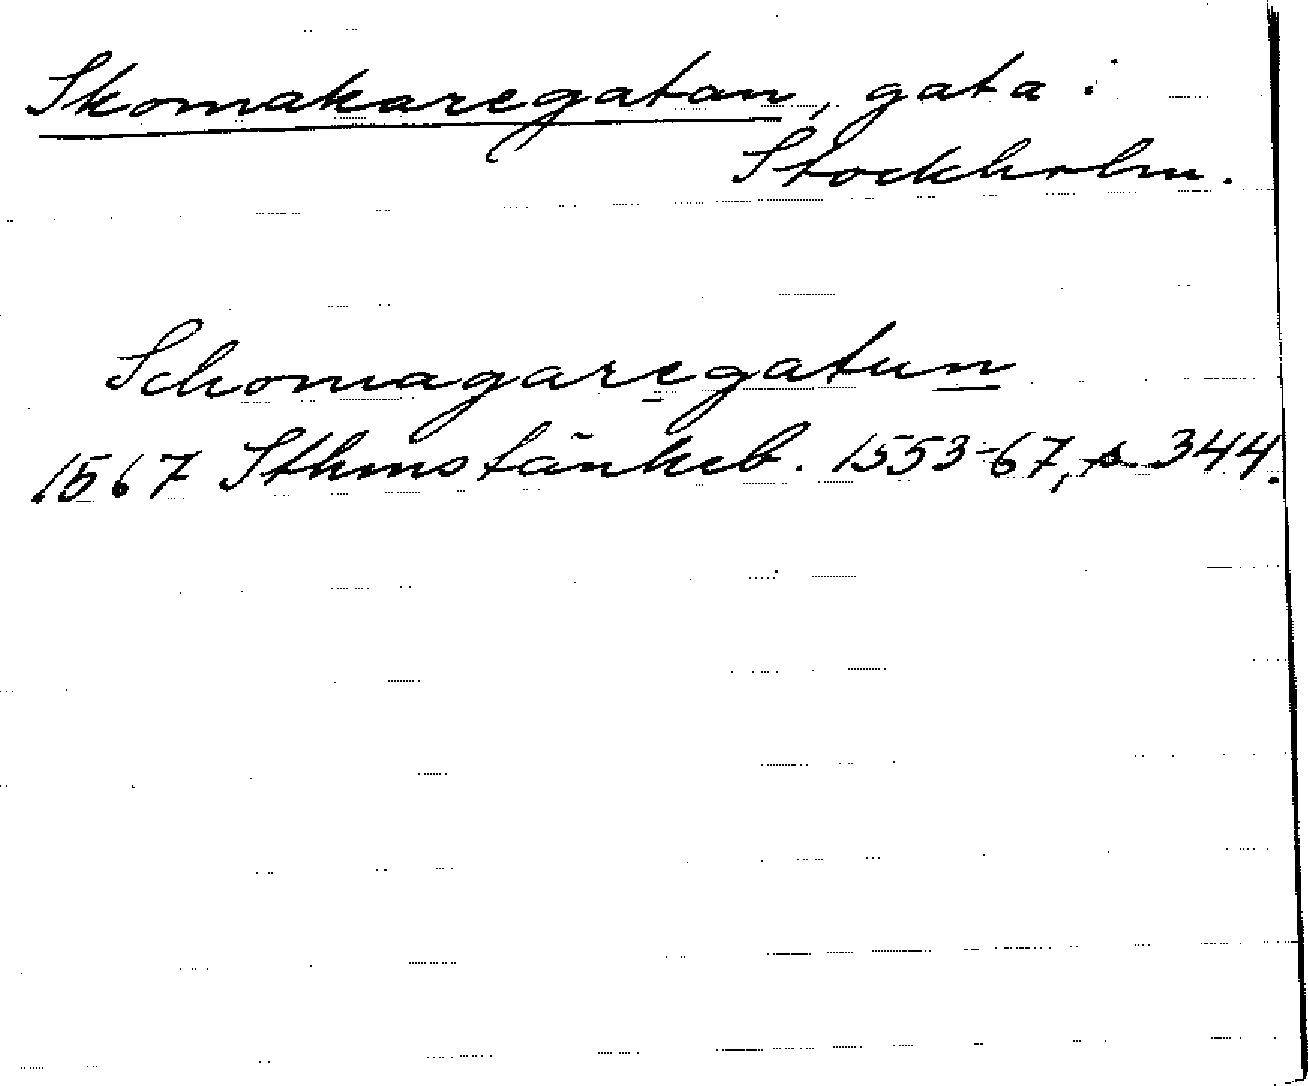 Skomakaregatan, gata i
Stockholm.
Schomagaregatun
1567 Sthms tänkeb. 1553-67, s. 344.